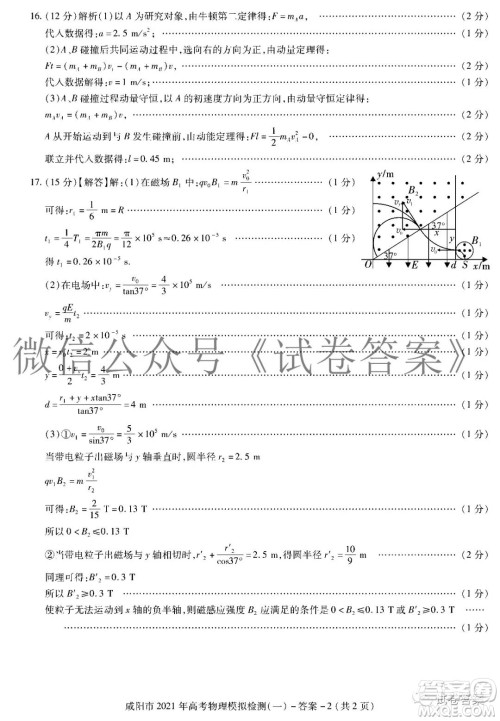 16. (12 分)解析(1)以 A 为研究对象,由牛顿第二定律得:F = m_A a, (2 分)
代入数据得:a = 2.5 m/s² (2 分)
(2)A、B 碰撞后共同运动过程中,选向右的方向为正,由动量定理得:
Ft = (m_A + m_B)v_t - (m_A + m_B)v, (2 分)
代入数据解得:v = 1 m/s; (2 分)
(3)A、B 碰撞过程动量守恒,以 A 的初速度方向为正方向,由动量守恒定律得:
m_A v_A = (m_A + m_B)v, (2 分)
A 从开始运动到与 B 发生碰撞前,由动能定理得:Fl = 1/2 m_A v_A² - 0, (1 分)
联立并代入数据得:l = 0.45 m; (1 分)
17. (15 分)【解答】解:(1)在磁场 B₁ 中:qv₀B₁ = m v₀²/r₁ (1 分)
可得:r₁ = 1/6 m = R (1 分)
t₁ = 1/4 T₁ = πm/2B₁q = π/12 × 10⁻⁵ s ≈ 0.26 × 10⁻⁵ s
得 t₁ = 0.26 × 10⁻⁵ s. (1 分)
(2)在电场中:v_y = v₀/tan37° = 4/3 × 10⁵ m/s (1 分)
v_y = qE/m t₂ (1 分)
可得:t₂ = 2 × 10⁻⁵ s (1 分)
x = v₀t₂ = 2 m (1 分)
y = (0 + v_y)/2 t₂ = 4/3 m (1 分)
d = (r₁ + y + xtan37°)/tan37° = 4 m (1 分)
(3)①v₁ = v₀/sin37° = 5/3 × 10⁵ m/s (1 分)
当带电粒子出磁场与 y 轴垂直时,圆半径 r₂ = 2.5 m
qv₁B₂ = m v₁²/r₂
可得:B₂ = 2/15 T = 0.13 T (1 分)
所以 0 < B₂ ≤ 0.13 T
②当带电粒子出磁场与 y 轴相切时,r'₂ + r'₂/cos37° = 2.5 m,r'₂ = 10/9 m (2 分)
同理可得:B'₂ = 0.3 T
所以 B'₂ ≥ 0.3 T (1 分)
使粒子无法运动到 x 轴的负半轴,则磁感应强度 B₂ 应满足的条件是 0 < B₂ ≤ 0.13 T 或 B'₂ ≥ 0.3 T
(1 分)
y/m
B₂
37°
x
y
B₁
O
37°
E
d
S
x/m
微信公众号《试卷答案》
咸阳市 2021 年高考物理模拟检测(一) - 答案 - 2 (共 2 页)
试卷答案